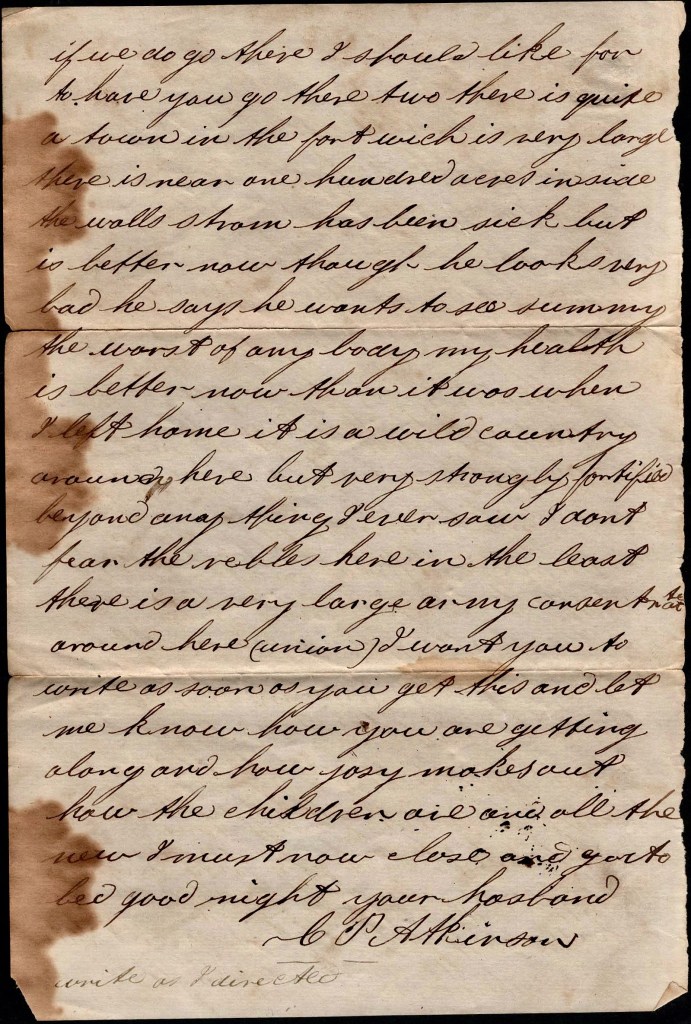 if we do go there I should like for
to have you go there two there is quite
a town in the fort wich is very large
there is near one hundred acres in side
the walls strom has been sick but
is better now though he looks very
bad he says he wants to see summy
the worst of any body my health
is better now than it was when
I left home it is a wild country
around here but very strongly fortified
beyond any thing I ever saw I dont
fear the rebles here in the least
there is a very large army consentrated
around here (union) I want you to
write as soon as you get this and let
me know how you are getting
along and how josy makes out
how the children are and all the
new I must now close and go to
bed good night your husband
C P Atkinson
write as I directed